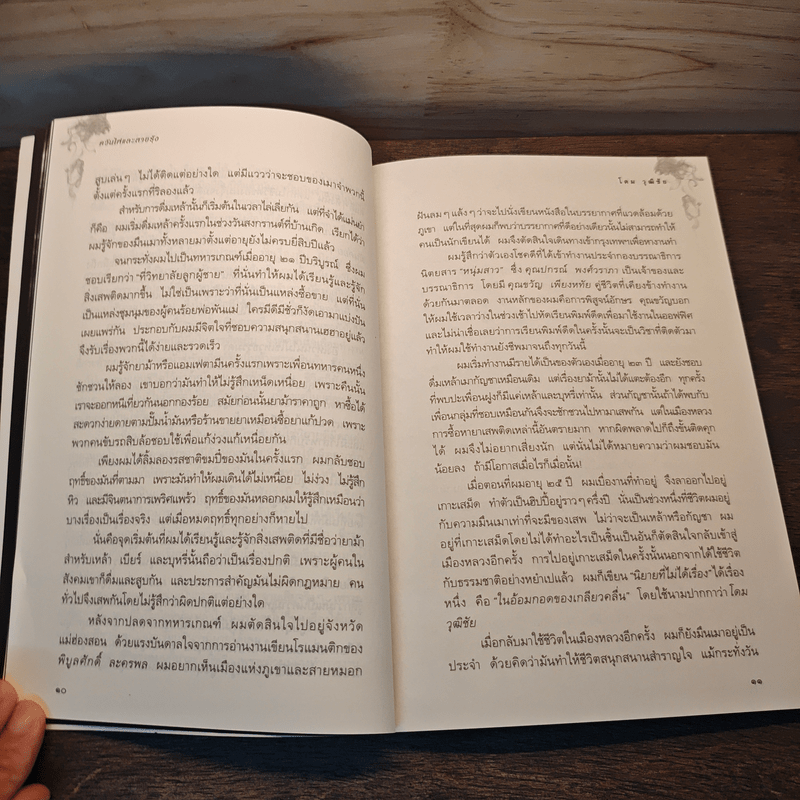 ควันไฟและสายรุ้ง
สูบเล่นๆ ไม่ได้ติดแต่อย่างใด แต่มีแววว่าจะชอบของเมาจำพวกนี้
ตั้งแต่ครั้งแรกที่ริลองแล้ว
สำหรับการดื่มเหล้านั้นก็เริ่มต้นในเวลาไล่เลี่ยกัน แต่ที่จำได้แม่นยำ
ก็คือ ผมเริ่มดื่มเหล้าครั้งแรกในช่วงวันสงกรานต์ที่บ้านเกิด เรียกได้ว่า
ผมรู้จักของมึนเมาทั้งหลายมาตั้งแต่อายุยังไม่ครบยี่สิบปีแล้ว
จนกระทั่งผมไปเป็นทหารเกณฑ์เมื่ออายุ ๒๑ ปีบริบูรณ์ ซึ่งผม
ชอบเรียกว่า “ที่วิทยาลัยลูกผู้ชาย” ที่นั่นทำให้ผมได้เรียนรู้และรู้จัก
สิ่งเสพติดมากขึ้น ไม่ใช่เป็นเพราะว่าที่นั่นเป็นแหล่งซื้อขาย แต่ที่นั่น
เป็นแหล่งชุมนุมของผู้คนร้อยพ่อพันแม่ ใครมีดีมีชั่วก็งัดเอามาแบ่งปัน
เผยแพร่กัน ประกอบกับผมมีจิตใจที่ชอบความสนุกสนานเฮฮาอยู่แล้ว
จึงรับเรื่องพวกนี้ได้ง่ายและรวดเร็ว
ผมรู้จักยาม้าหรือแอมเฟตามีนครั้งแรกเพราะเพื่อนทหารคนหนึ่ง
ชักชวนให้ลอง เขาบอกว่ามันทำให้ไม่รู้สึกเหน็ดเหนื่อย เพราะคืนนั้น
เราจะออกหนีเที่ยวกันนอกกองร้อย สมัยก่อนนั้นยาม้าราคาถูก หาซื้อได้
สะดวกง่ายดายตามปั๊มน้ำมันหรือร้านขายยาเหมือนซื้อยาแก้ปวด เพราะ
พวกคนขับรถสิบล้อชอบใช้เพื่อแก้ง่วงแก้เหนื่อยกัน
เพียงผมได้ลิ้มลองรสชาติขมปี๋ของมันในครั้งแรก ผมกลับชอบ
ฤทธิ์ของมันที่ตามมา เพราะมันทำให้ผมเดินได้ไม่เหนื่อย ไม่ง่วง ไม่รู้สึก
หิว และมีจินตนาการเพริศแพร้ว ฤทธิ์ของมันหลอกผมให้รู้สึกเหมือนว่า
บางเรื่องเป็นเรื่องจริง แต่เมื่อหมดฤทธิ์ทุกอย่างก็หายไป
นั่นคือจุดเริ่มต้นที่ผมได้เรียนรู้และรู้จักสิ่งเสพติดที่มีชื่อว่ายาม้า
สำหรับเหล้า เบียร์ และบุหรี่นั้นถือว่าเป็นเรื่องปกติ เพราะผู้คนใน
สังคมเขาก็ดื่มและสูบกัน และประการสำคัญมันไม่ผิดกฎหมาย คน
ทั่วไปจึงเสพกันโดยไม่รู้สึกว่าผิดปกติแต่อย่างใด
หลังจากปลดจากทหารเกณฑ์ ผมตัดสินใจไปอยู่จังหวัด
แม่ฮ่องสอน ด้วยแรงบันดาลใจจากการอ่านงานเขียนโรแมนติกของ
พิบูลศักดิ์ ละครพล ผมอยากเห็นเมืองแห่งภูเขาและสายหมอก
๑๐
โดม วุฒิชัย
ฝันลมๆ แล้งๆ ว่าจะไปนั่งเขียนหนังสือในบรรยากาศที่แวดล้อมด้วย
ภูเขา แต่ในที่สุดผมก็พบว่าบรรยากาศที่ดีอย่างเดียวนั้นไม่สามารถทำให้
คนเป็นนักเขียนได้ ผมจึงตัดสินใจเดินทางเข้ากรุงเทพฯ เพื่อหางานทำ
ผมรู้สึกว่าตัวเองโชคดีที่ได้เข้าทำงานประจำกองบรรณาธิการ
นิตยสาร “หนุ่มสาว” ซึ่ง คุณปกรณ์ พงศ์วราภา เป็นเจ้าของและ
บรรณาธิการ โดยมี คุณขวัญ เพียงหทัย คู่ชีวิตที่เคียงข้างทำงาน
ด้วยกันมาตลอด งานหลักของผมคือการพิสูจน์อักษร คุณขวัญบอก
ให้ผมใช้เวลาว่างในช่วงเข้าไปหัดเรียนพิมพ์ดีดเพื่อมาใช้งานในออฟฟิศ
และไม่น่าเชื่อเลยว่าการเรียนพิมพ์ดีดในครั้งนั้นจะเป็นวิชาที่ติดตัวมา
ทำให้ผมใช้ทำงานยังชีพมาจนถึงทุกวันนี้
ผมเริ่มทำงานมีรายได้เป็นของตัวเองเมื่ออายุ ๒๓ ปี และยังชอบ
ดื่มเหล้าเมากัญชาเหมือนเดิม แต่เรื่องยาม้านั้นไม่ได้แตะต้องอีก ทุกครั้ง
ที่พบปะเพื่อนฝูงก็มีแค่เหล้าและบุหรี่เท่านั้น ส่วนกัญชานั้นถ้าได้พบกับ
เพื่อนกลุ่มที่ชอบเหมือนกันจึงจะชักชวนไปหามาเสพกัน แต่ในเมืองหลวง
การซื้อหายาเสพติดเหล่านี้อันตรายมาก หากผิดพลาดไปก็ถึงขั้นติดคุก
ได้ ผมจึงไม่อยากเสี่ยงนัก แต่นั่นไม่ได้หมายความว่าผมชอบมัน
น้อยลง ถ้ามีโอกาสเมื่อไรก็เมื่อนั้น!
เมื่อตอนที่ผมอายุ ๒๕ ปี ผมเบื่องานที่ทำอยู่ จึงลาออกไปอยู่
เกาะเสม็ด ทำตัวเป็นฮิปปี้อยู่ราวๆ ครึ่งปี นั่นเป็นช่วงหนึ่งที่ชีวิตผมอยู่
กับความมึนเมาเท่าที่จะมีของเสพ ไม่ว่าจะเป็นเหล้าหรือกัญชา ผม
อยู่ที่เกาะเสม็ดโดยไม่ได้ทำอะไรเป็นชิ้นเป็นอันก็ตัดสินใจกลับเข้าสู่
เมืองหลวงอีกครั้ง การไปอยู่เกาะเสม็ดในครั้งนั้นนอกจากได้ใช้ชีวิต
กับธรรมชาติอย่างหยำเปแล้ว ผมก็เขียน “นิยายที่ไม่ได้เรื่อง” ได้เรื่อง
หนึ่ง คือ “ในอ้อมกอดของเกลียวคลื่น” โดยใช้นามปากกาว่า โดม
วุฒิชัย
เมื่อกลับมาใช้ชีวิตในเมืองหลวงอีกครั้ง ผมก็ยังมึนเมาอยู่เป็น
ประจำ ด้วยคิดว่ามันทำให้ชีวิตสนุกสนานสำราญใจ แม้กระทั่งวัน
๑๑